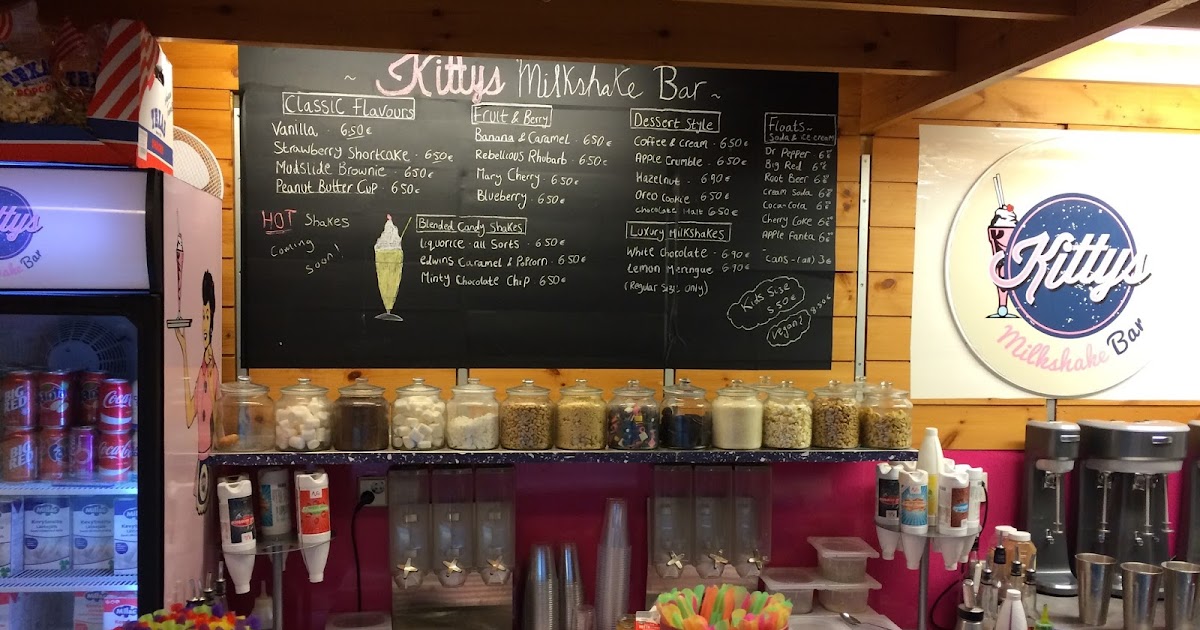 ~ Kittys Milkshake Bar ~
Classic Flavours
Vanilla - 6.50€
Strawberry Shortcake - 6.50€
Mudslide Brownie - 6.50€
Peanut Butter Cup - 6.50€
HOT Shakes
Coming
soon!
Fruit & Berry
Banana & Caramel - 6.50€
Rebellious Rhubarb - 6.50€
Mary Cherry - 6.50€
Blueberry - 6.50€
Blended Candy Shakes
Liquorice-all Sorts - 6.50€
Edwins Caramel & Popcorn - 6.50€
Minty Chocolate Chip 6.50€
Dessert Style
Coffee & Cream - 6.50€
Apple Crumble - 6.50€
Hazelnut - 6.90€
Oreo Cookie 6.50€
Chocolate Malt 6.50€
Luxury Milkshakes
White Chocolate - 6.90€
Lemon Merengue 6.90€
(Regular Size Only)
Floats~
Soda & ice cream
Dr Pepper
Big Red
Root Beer
Cream Soda
Coca-Cola
Cherry Coke
Apple Fanta
Cans-(all) 3€
Kids Size
5.50€
Vegan?
8.50€
Kittys
Milkshake Bar
Kittys
Milkshake Bar
BIG
RED
Coca-Cola
BIG
RED
Coca-Cola